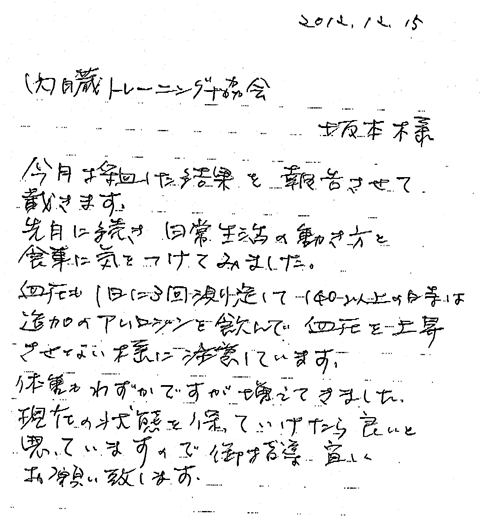 2012.12.15
内臓トレーニング協会
坂本様
今月は採血した結果を報告させて
戴きます。
先月に続き日常生活の動き方と
食事に気をつけてみました。
血圧も1日に3回測定して140以上の時は
追加のアムロジンを飲んで血圧を上昇
させない様に注意しています。
体重もわずかですが増えてきました。
現在の状態を保っていけたら良いと
思っていますので御指導宜しく
お願い致します。